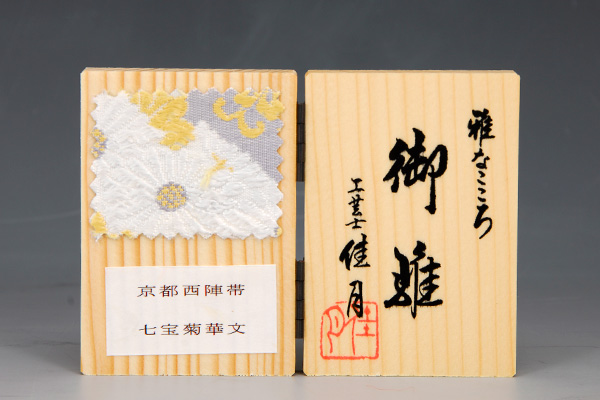 京都西陣帯
七宝菊華文
雅なこころ
御雛
工芸士 佳月
佳月